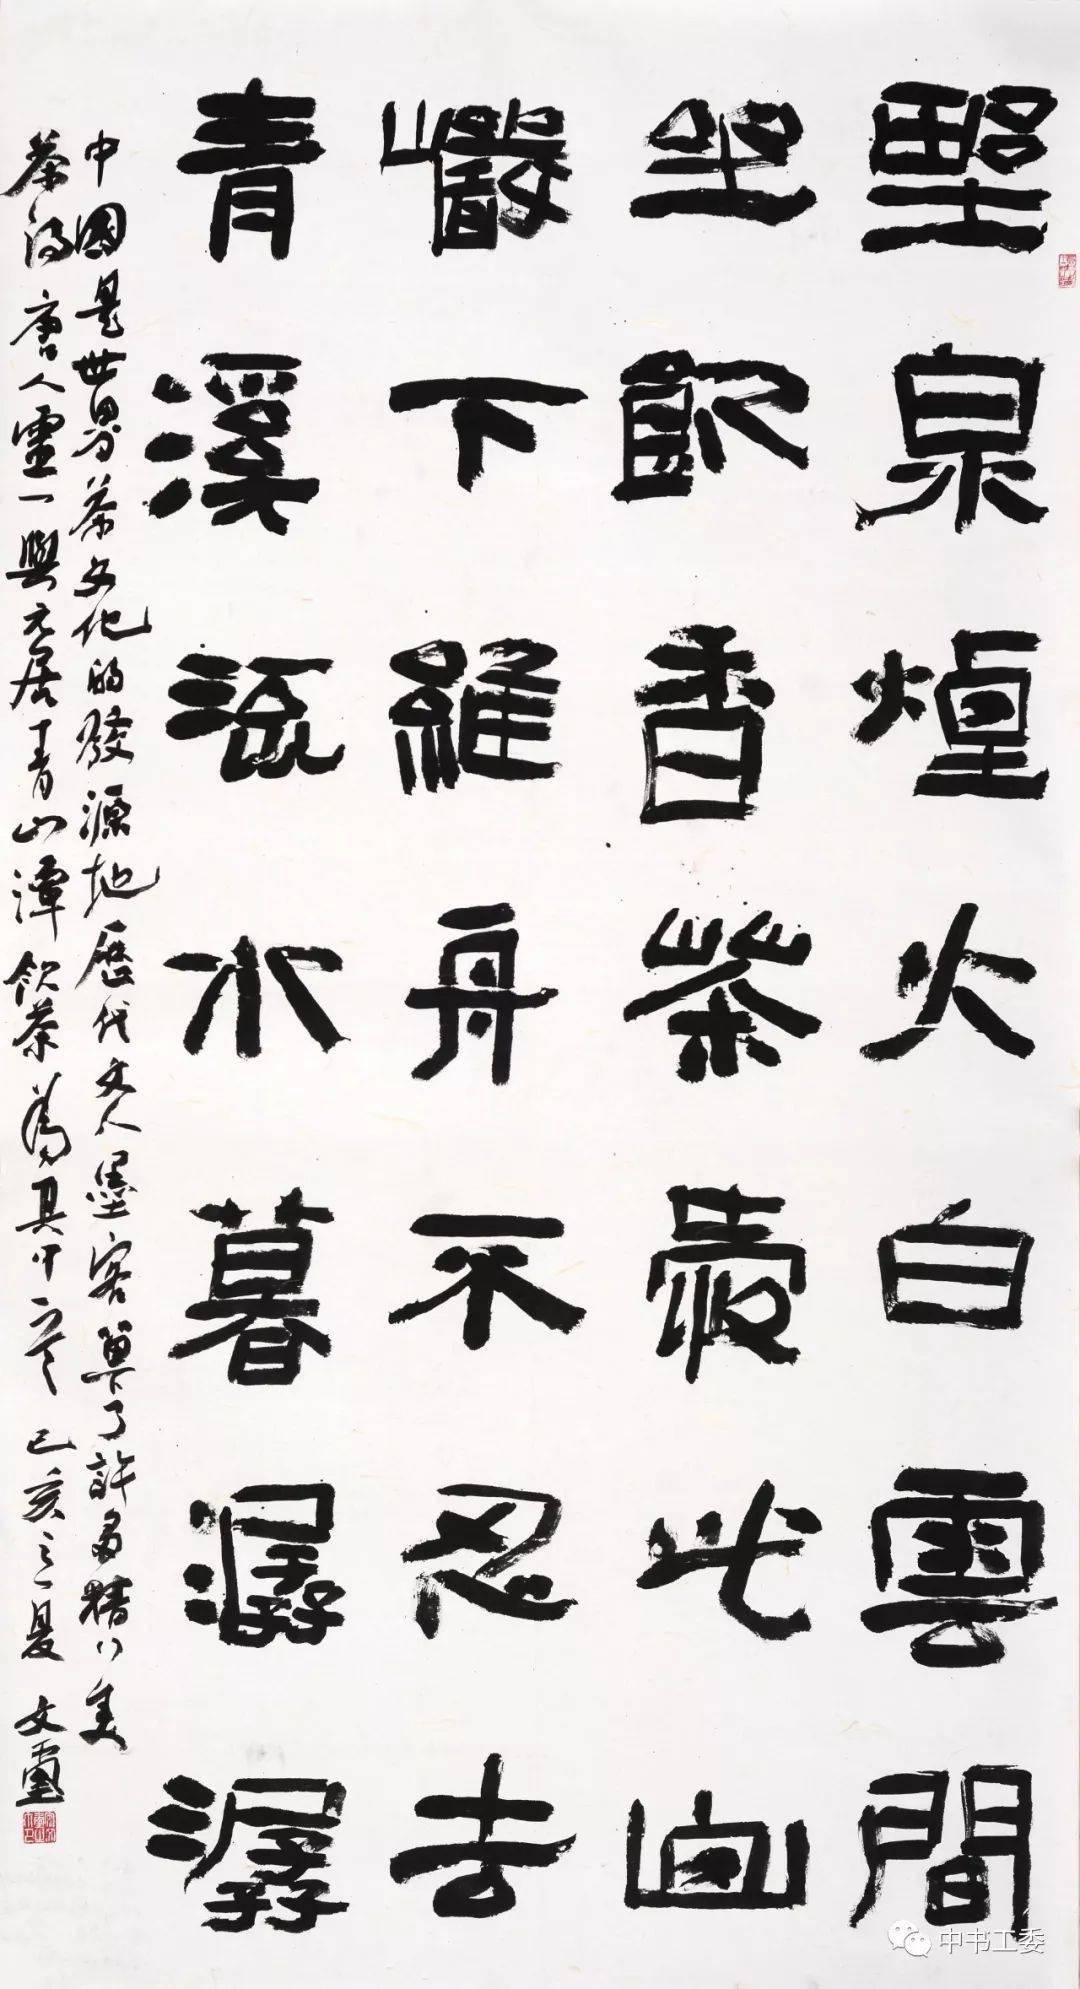 野泉煙火白雲間
坐飲香茶愛此山
巖下維舟不忍去
青溪流水暮潺潺
中國是世界茶文化的發源地歷代文人墨客留下了許多精美
茶詩唐人靈一與元居士青山潭飲茶為其中之一 己亥之夏 文
中书工委